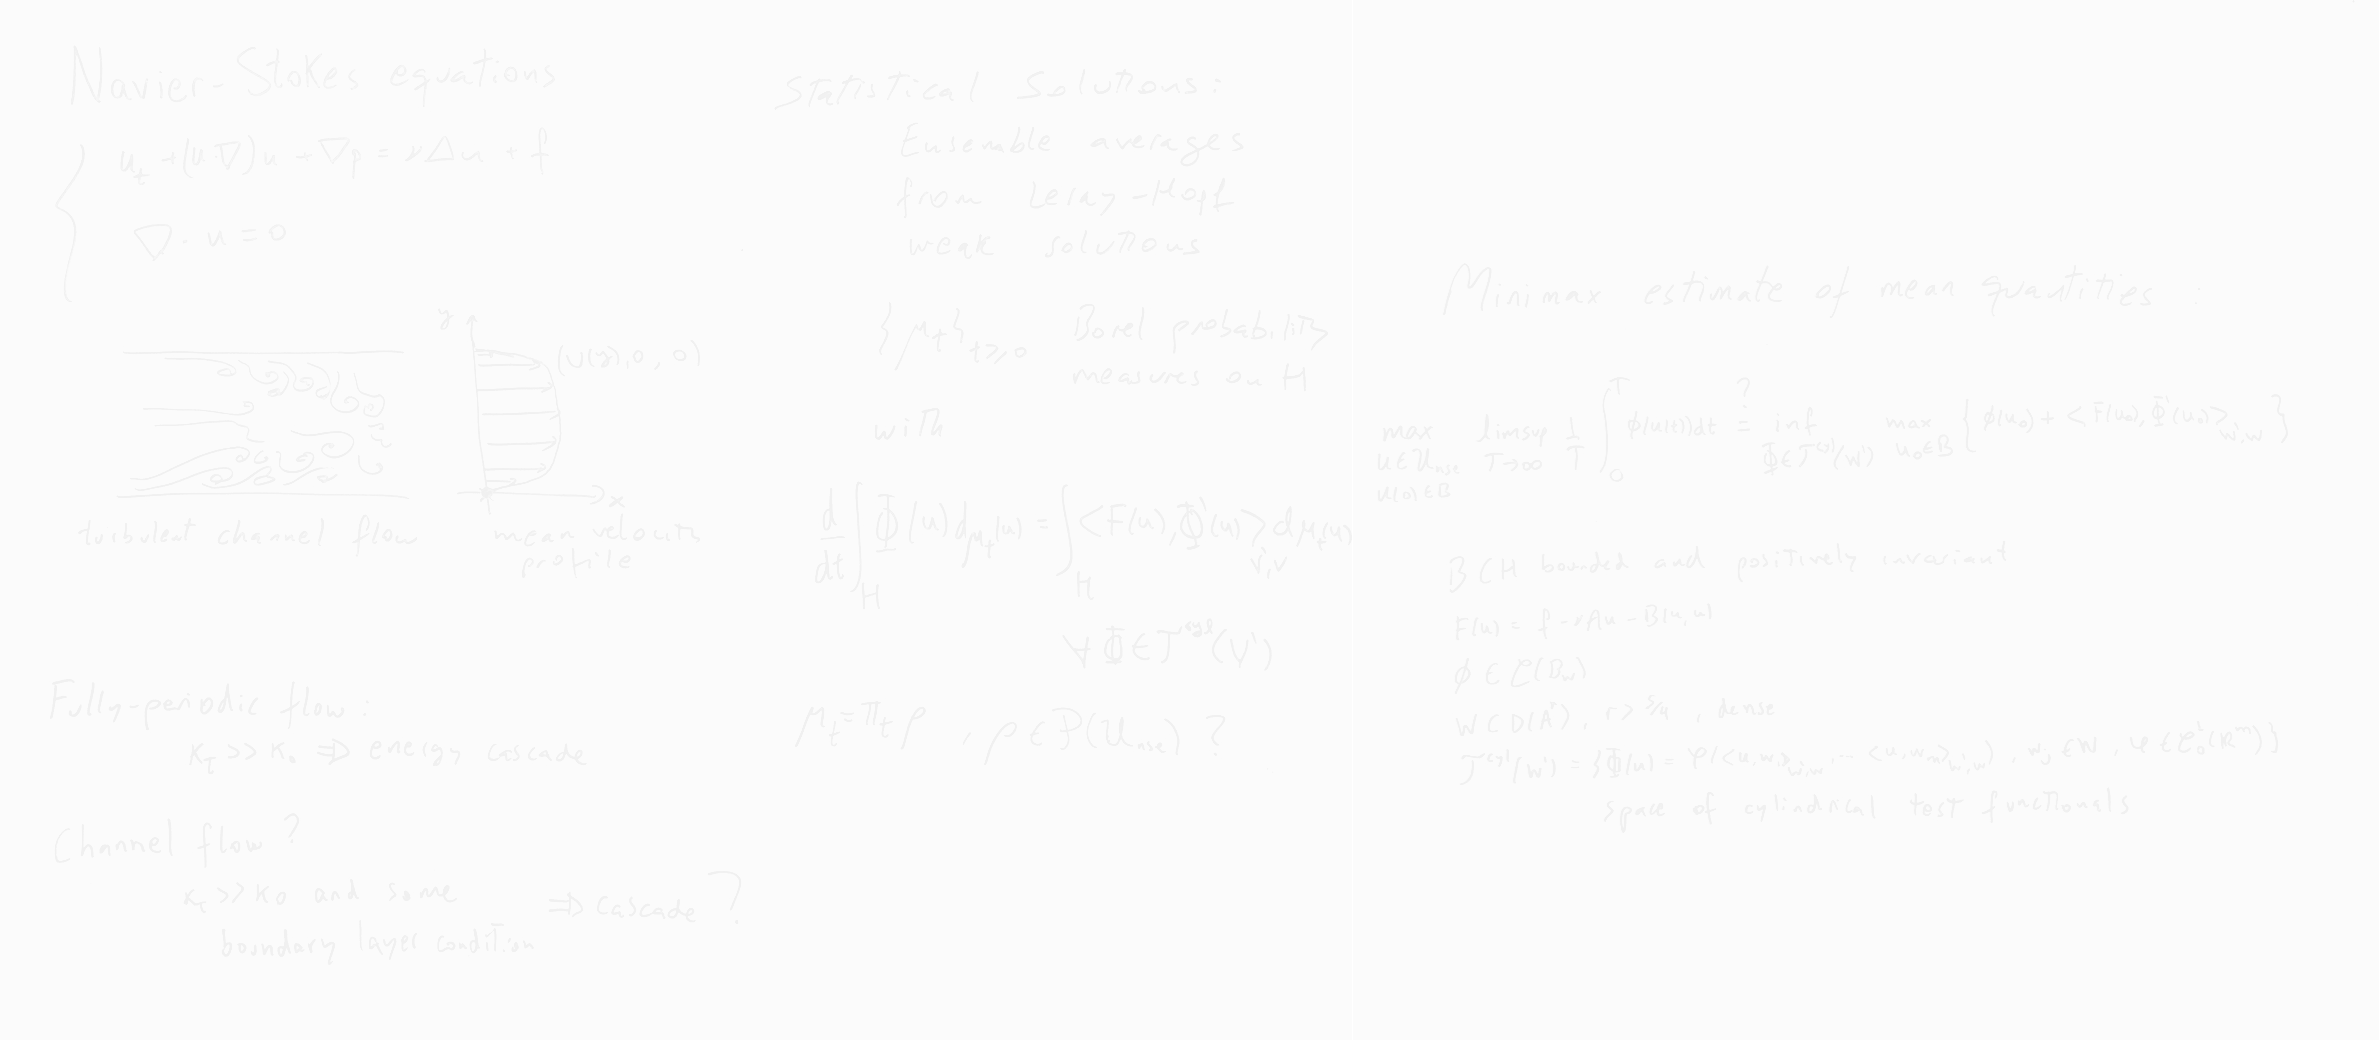 Navier-Stokes equations
u_t + (u·∇)u + ∇p = ν∆u + f
∇· u = 0
y
(U(y), 0, 0)
x
turbulent channel flow
mean velocity
profile
Fully-periodic flow:
κ_τ >> κ_0 ⇒ energy cascade
Channel flow?
κ_τ >> κ_0 and some
boundary layer condition
⇒ cascade ?
Statistical Solutions:
Ensemble averages
from Leray-Hopf
weak solutions
{μ_t}_{t≥0} Borel probability
measures on H
with
d/dt ∫_H Φ(u) dμ_t(u) = ∫_H <F(u), Φ'(u)>_{V',V} dμ_t(u)
∀ Φ ∈ T^{cyl}(V')
μ_t = Π_t ρ , ρ ∈ P(U_nse) ?
Minimax estimate of mean quantities :
max_{u ∈ U_nse, u(0) ∈ B} limsup_{T→∞} 1/T ∫_0^T φ(u(t))dt =? inf_{Φ ∈ T^{cyl}(W')} max_{u_0 ∈ B} { φ(u_0) + <F(u_0), Φ'(u_0)>_{W',W} }
B ⊂ H bounded and positively invariant
F(u) = f - νAu - B(u,u)
φ ∈ C(B_w)
W ⊂ D(A^r), r > 5/4 , dense
T^{cyl}(W') = {Φ(u) = φ(<u,w_1>_{W',W}, ... <u,w_m>_{W',W}), w_j ∈ W, φ ∈ C_0^1(R^m)}
space of cylindrical test functionals